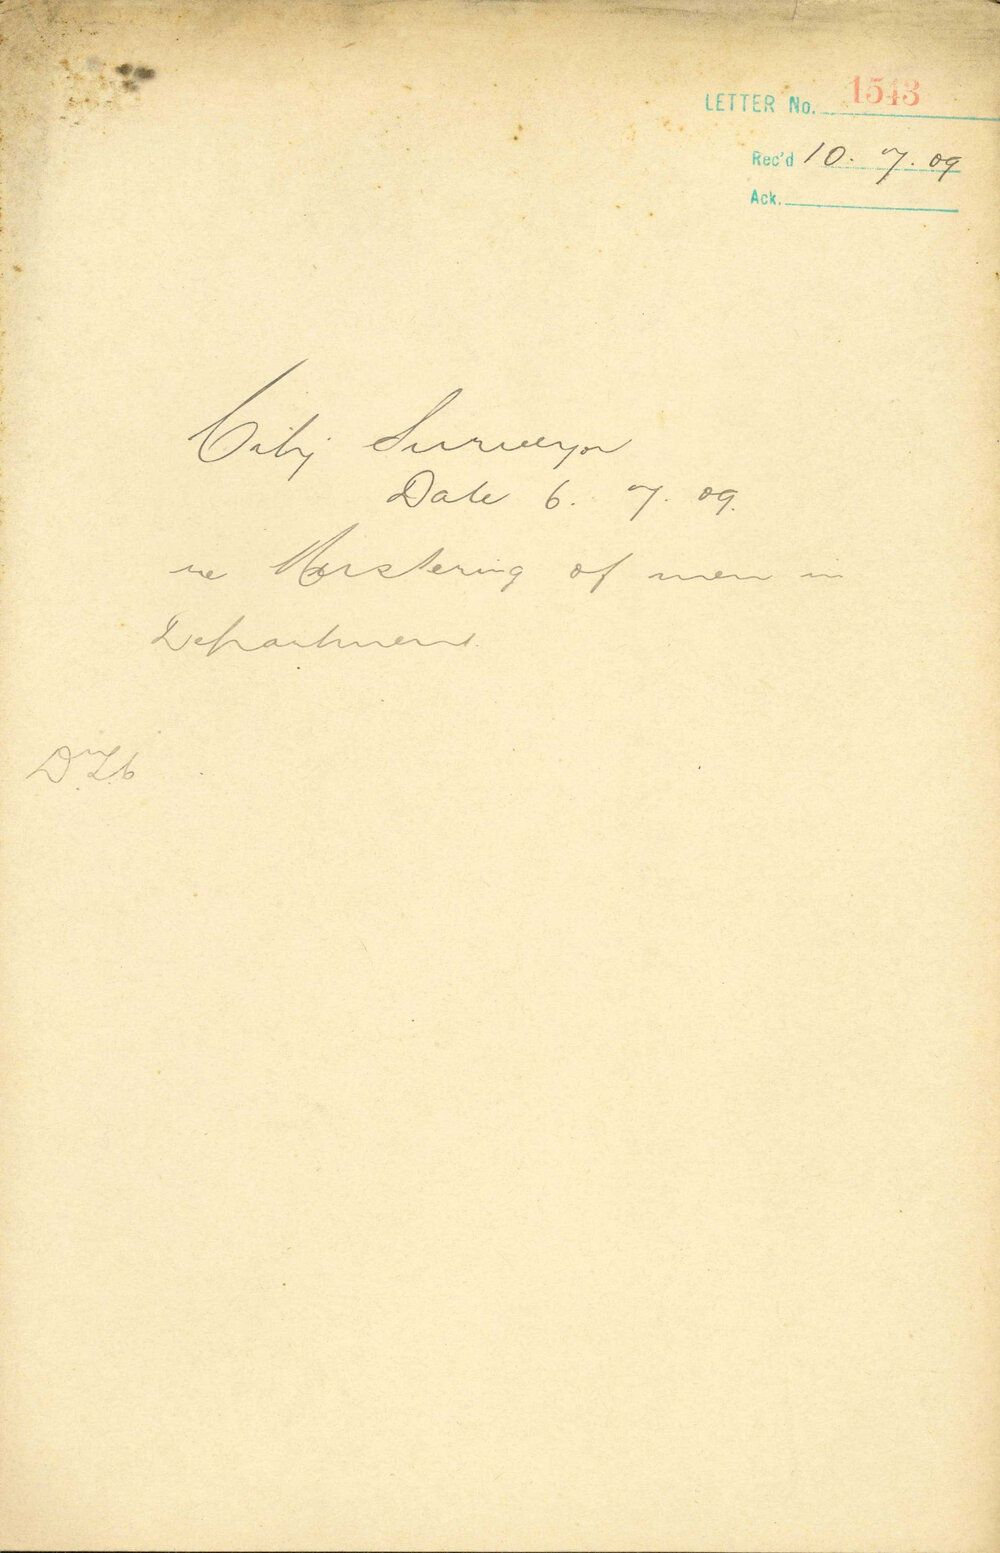 LETTER No. 1543
Rec'd 10. 7. 09
Ack.
City Surveyor
Date 6. 7. 09.
re Mustering of men in
Department.